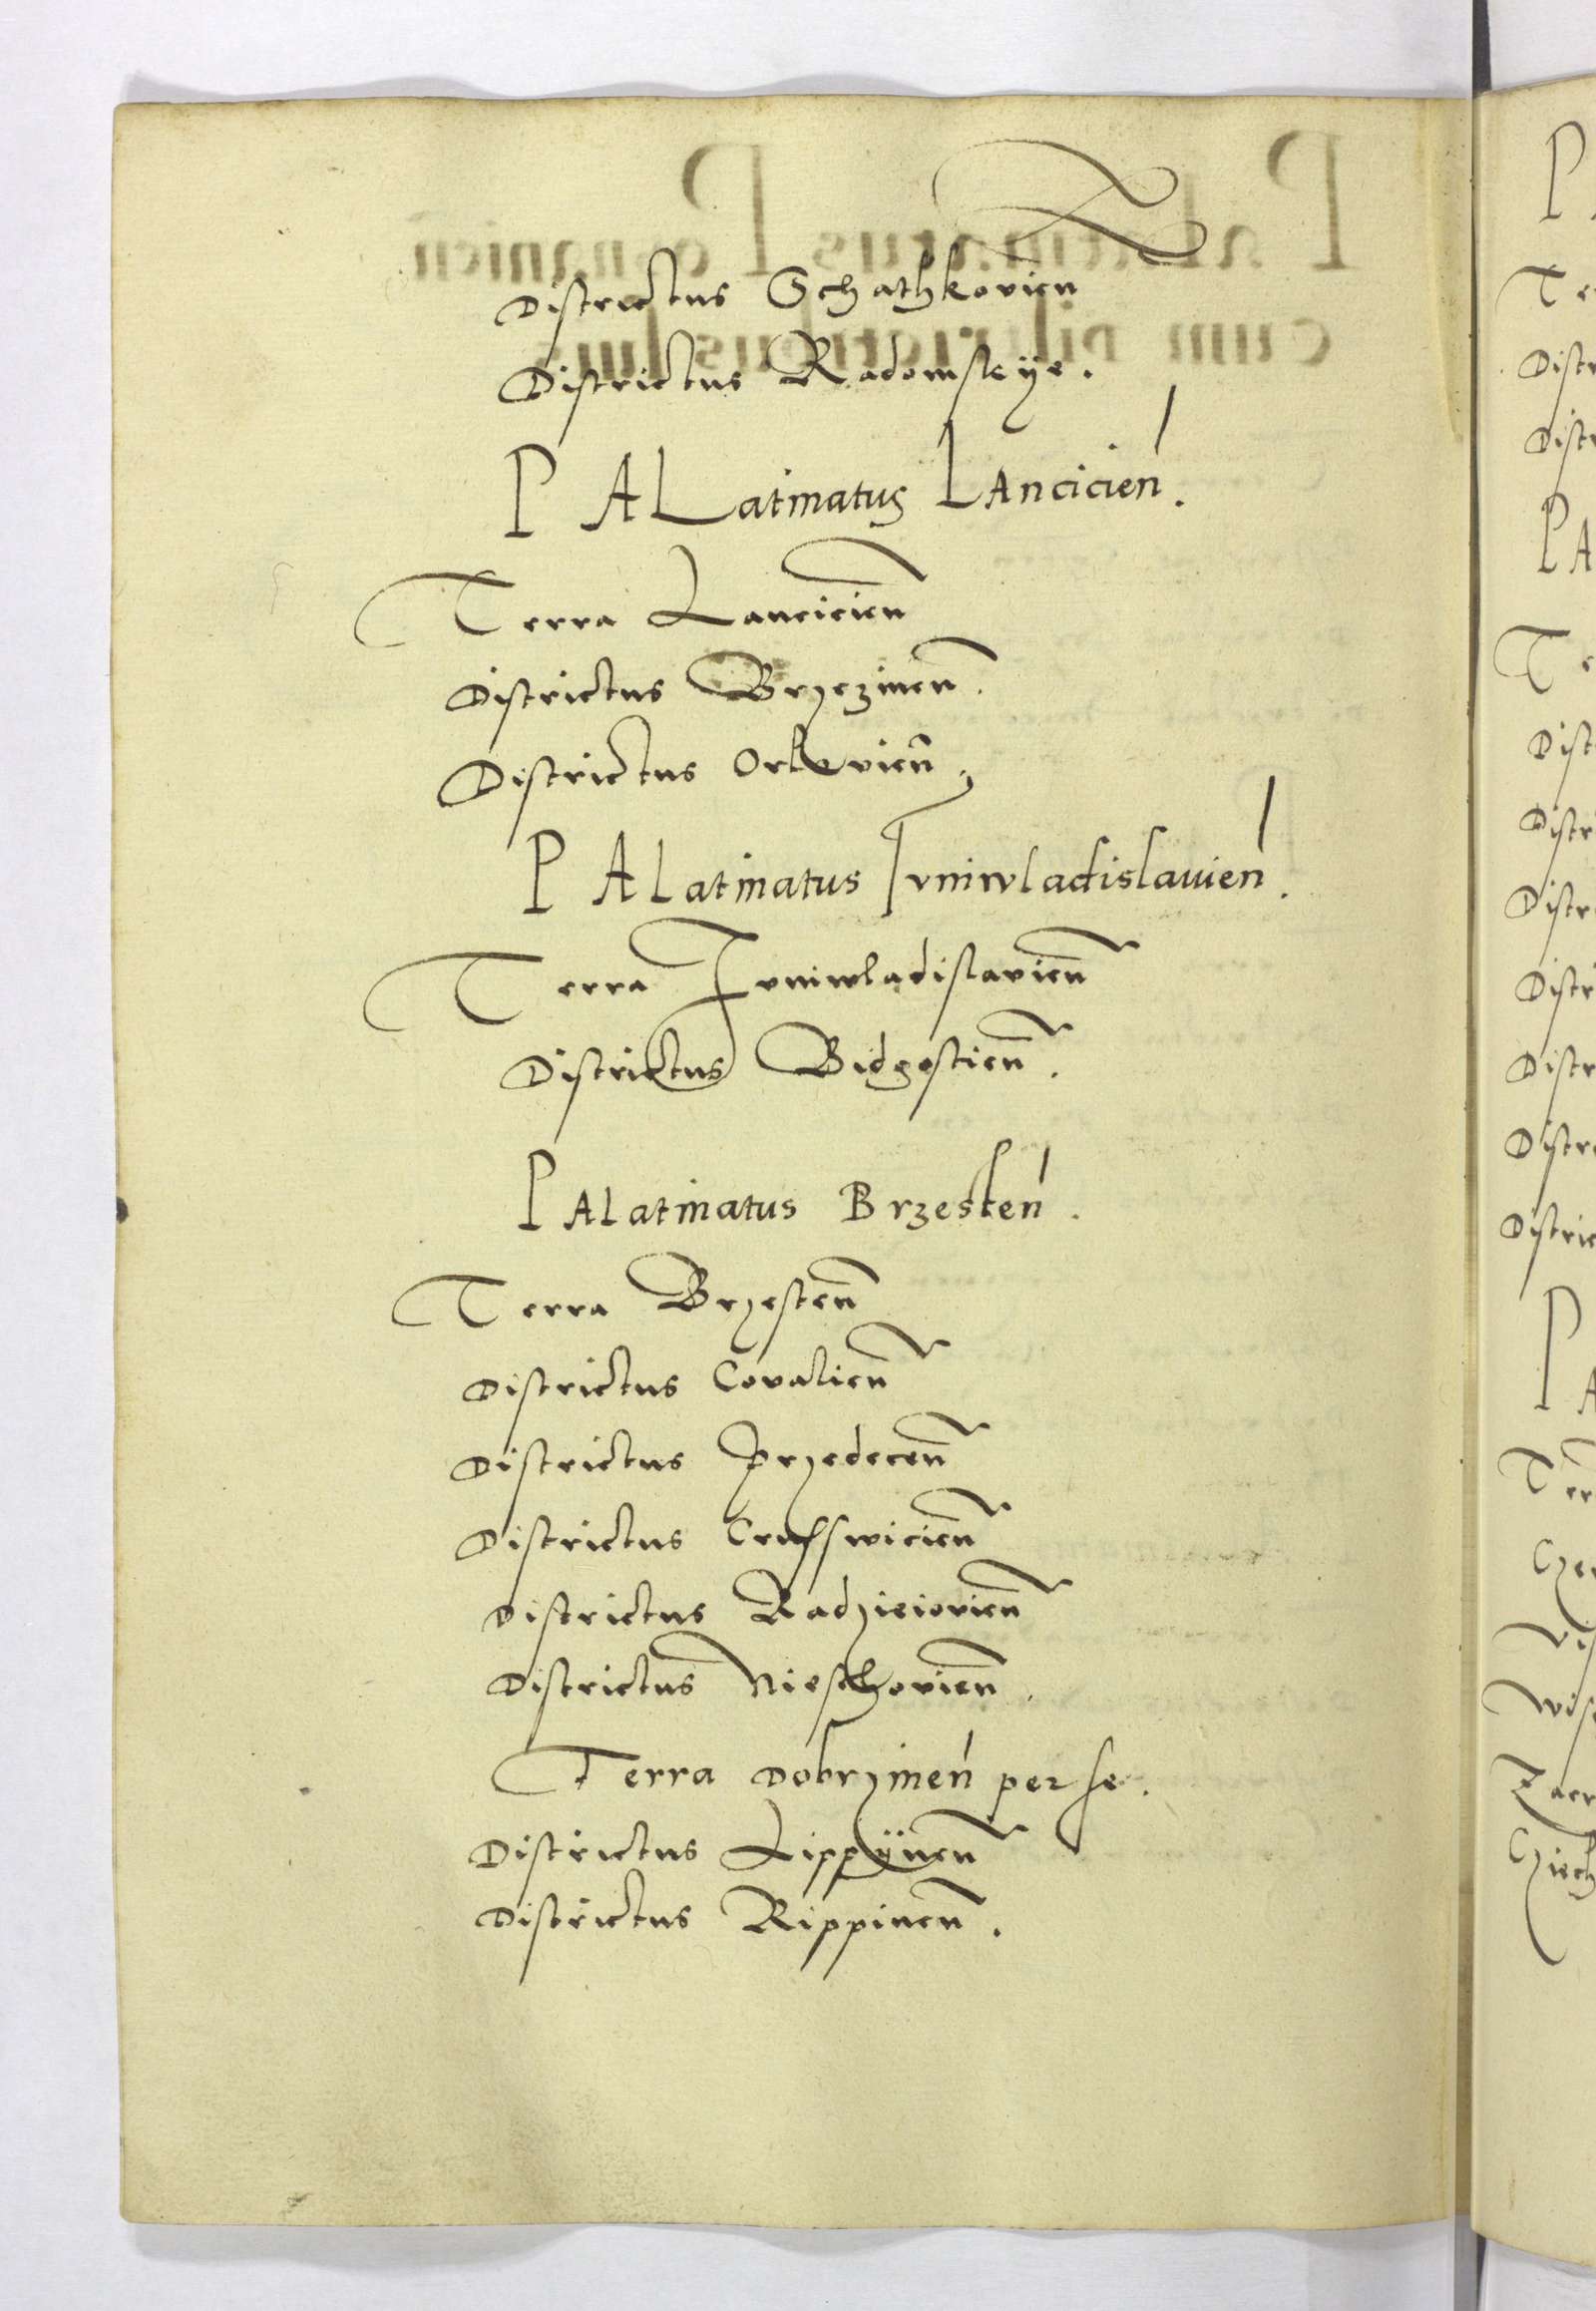 Districtus Schathkovien
Districtus Radomskÿe.
PALatinatus LAncicien.
Terra Lancicien
Districtus Brzezinen.
Districtus Orlovien,
PALatinatus Ivniwladislauien.
Terra Ivniwladislavien
Districtus Bidgostien.
PALatinatus Brzesten.
Terra Brzesten
Districtus Covalien
Districtus Przedecen
Districtus Crusswicien
Districtus Radzieiovien
Districtus Nieschovien.
Terra Dobrzinen per se.
Districtus Lippÿnen
Districtus Rippinen.